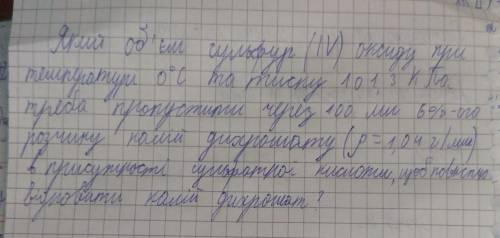 Який об'єм сульфур (IV) оксиду при
температури 0°C та тиску 101,3 кПа
треба пропустити через 100 мл 6%-ого
розчину калій дихромату (ρ = 1,04 г/мл)
в присутності сульфатної кислоти, щоб повністю
відновити калій дихромат?